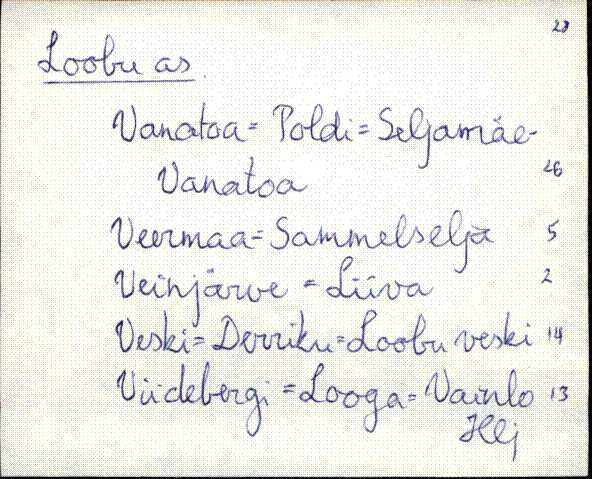 28
Loobu as.
Vanatoa = Poldi = Seljamäe-
Vanatoa 26
Veermaa = Sammelselja 5
Veinjärve = Liiva 2
Veski = Derriku = Loobu veski 14
Viidebergi = Looga = Vainlo 13